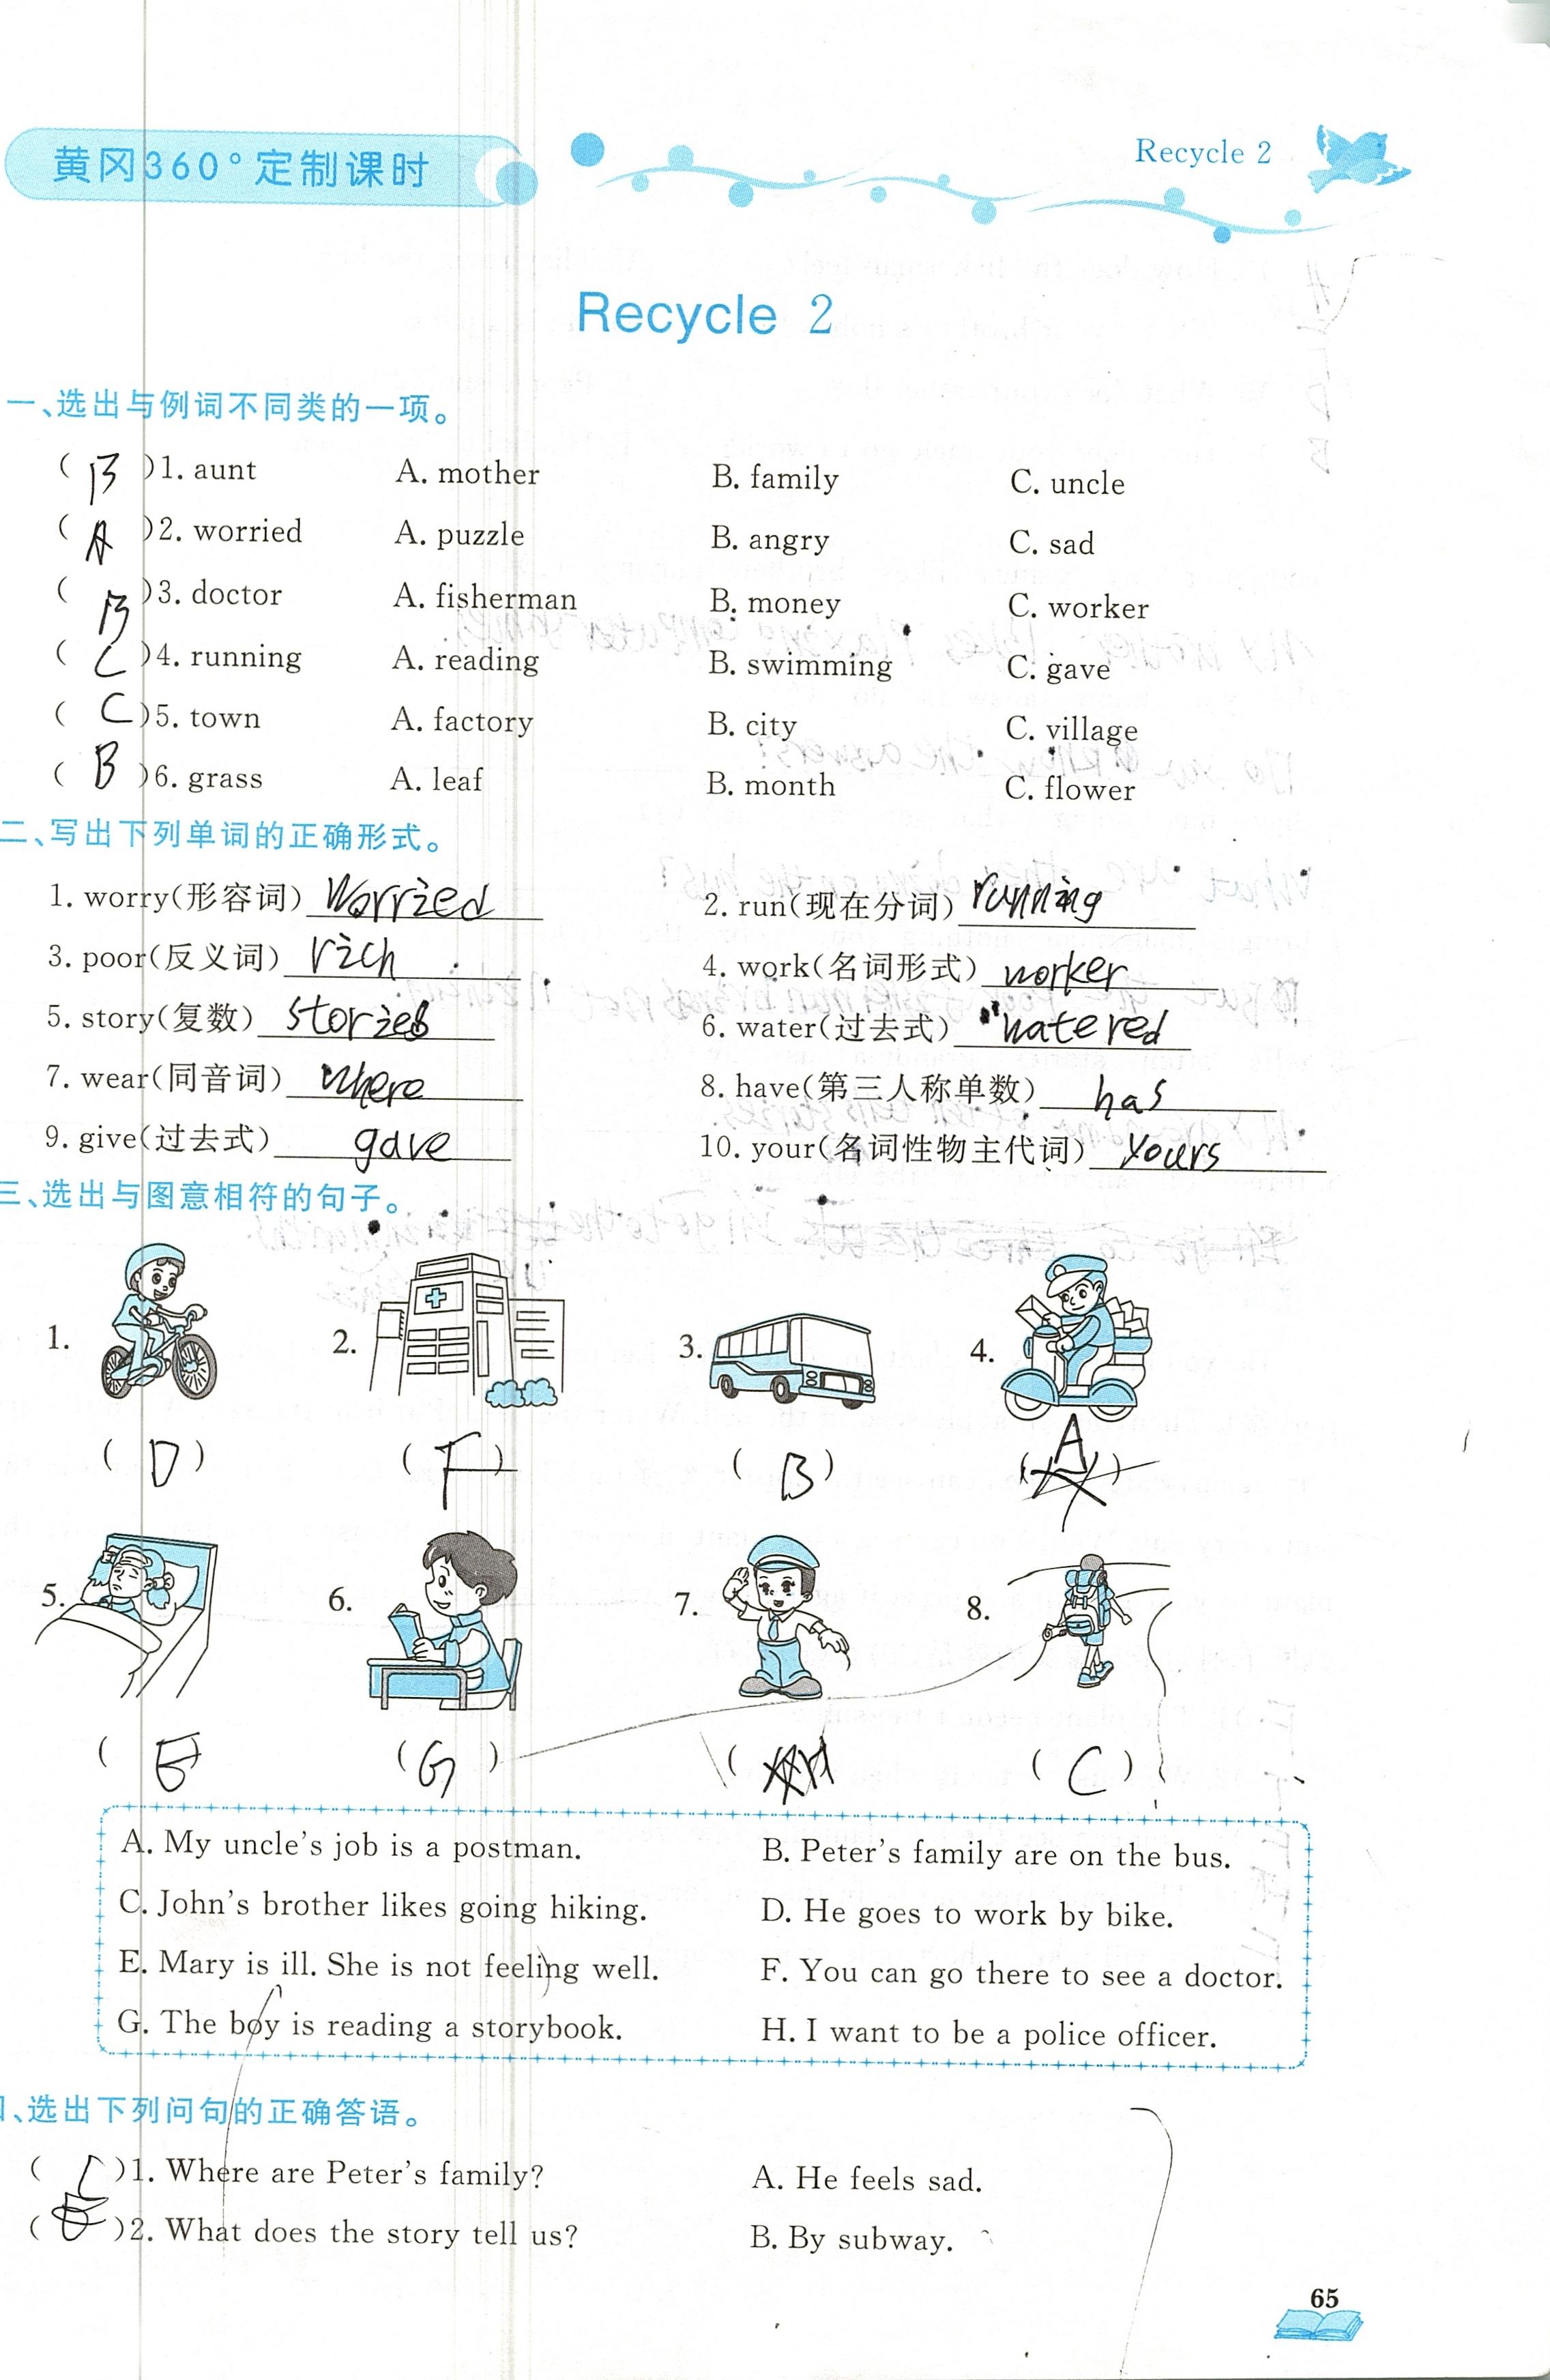 黄冈360°定制课时
Recycle 2
Recycle 2
一、选出与例词不同类的一项。
( B )1. aunt A. mother B. family C. uncle
( A )2. worried A. puzzle B. angry C. sad
( B )3. doctor A. fisherman B. money C. worker
( C )4. running A. reading B. swimming C. gave
( C )5. town A. factory B. city C. village
( B )6. grass A. leaf B. month C. flower
二、写出下列单词的正确形式。
1. worry(形容词) worried 2. run(现在分词) running
3. poor(反义词) rich 4. work(名词形式) worker
5. story(复数) stories 6. water(过去式) watered
7. wear(同音词) where 8. have(第三人称单数) has
9. give(过去式) gave 10. your(名词性物主代词) yours
三、选出与图意相符的句子。
1. 2. 3. 4.
( D ) ( F ) ( B ) ( A )
5. 6. 7. 8.
( E ( G ) ( H ( C )
A. My uncle's job is a postman. B. Peter's family are on the bus.
C. John's brother likes going hiking. D. He goes to work by bike.
E. Mary is ill. She is not feeling well. F. You can go there to see a doctor.
G. The boy is reading a storybook. H. I want to be a police officer.
、选出下列问句的正确答语。
( )1. Where are Peter's family? A. He feels sad.
( )2. What does the story tell us? B. By subway.
65